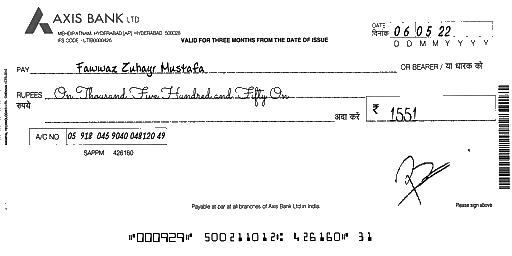 AXIS BANK LTD
MEHDIPATNAM, HYDERABAD [AP] HYDERABAD 500028
IFS CODE - UTIB0000426
VALID FOR THREE MONTHS FROM THE DATE OF ISSUE
DATE
दिनांक 06 05 22
D D M M Y Y Y Y
PAY Fawwaz Zuhayr Mustafa OR BEARER / या धारक को
RUPEES On Thousand Five Hundred and Fifty On
रुपये अदा करें ₹ 1551
A/C NO 05 918 045 9040 048120 49
SAPPM 426160
Payable at par at all branches of Axis Bank Ltd in India.
Please sign above
⑈000929⑈ 500211012⑆ 426160⑈ 31